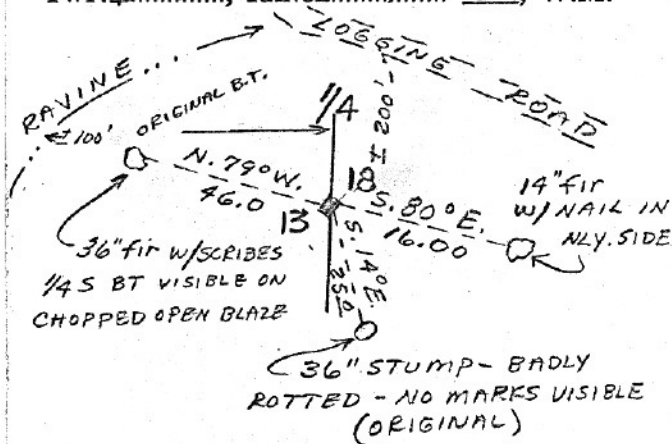 LOGGING ROAD
RAVINE...
± 100'
ORIGINAL B.T.
1/4
± 200'
N. 79° W.
46.0
18
13
S. 80° E.
16.00
14" fir
W/ NAIL IN
NLY. SIDE
S. 14° E.
25.0
36" fir W/SCRIBES
1/4 S BT VISIBLE ON
CHOPPED OPEN BLAZE
36" STUMP - BADLY
ROTTED - NO MARKS VISIBLE
(ORIGINAL)